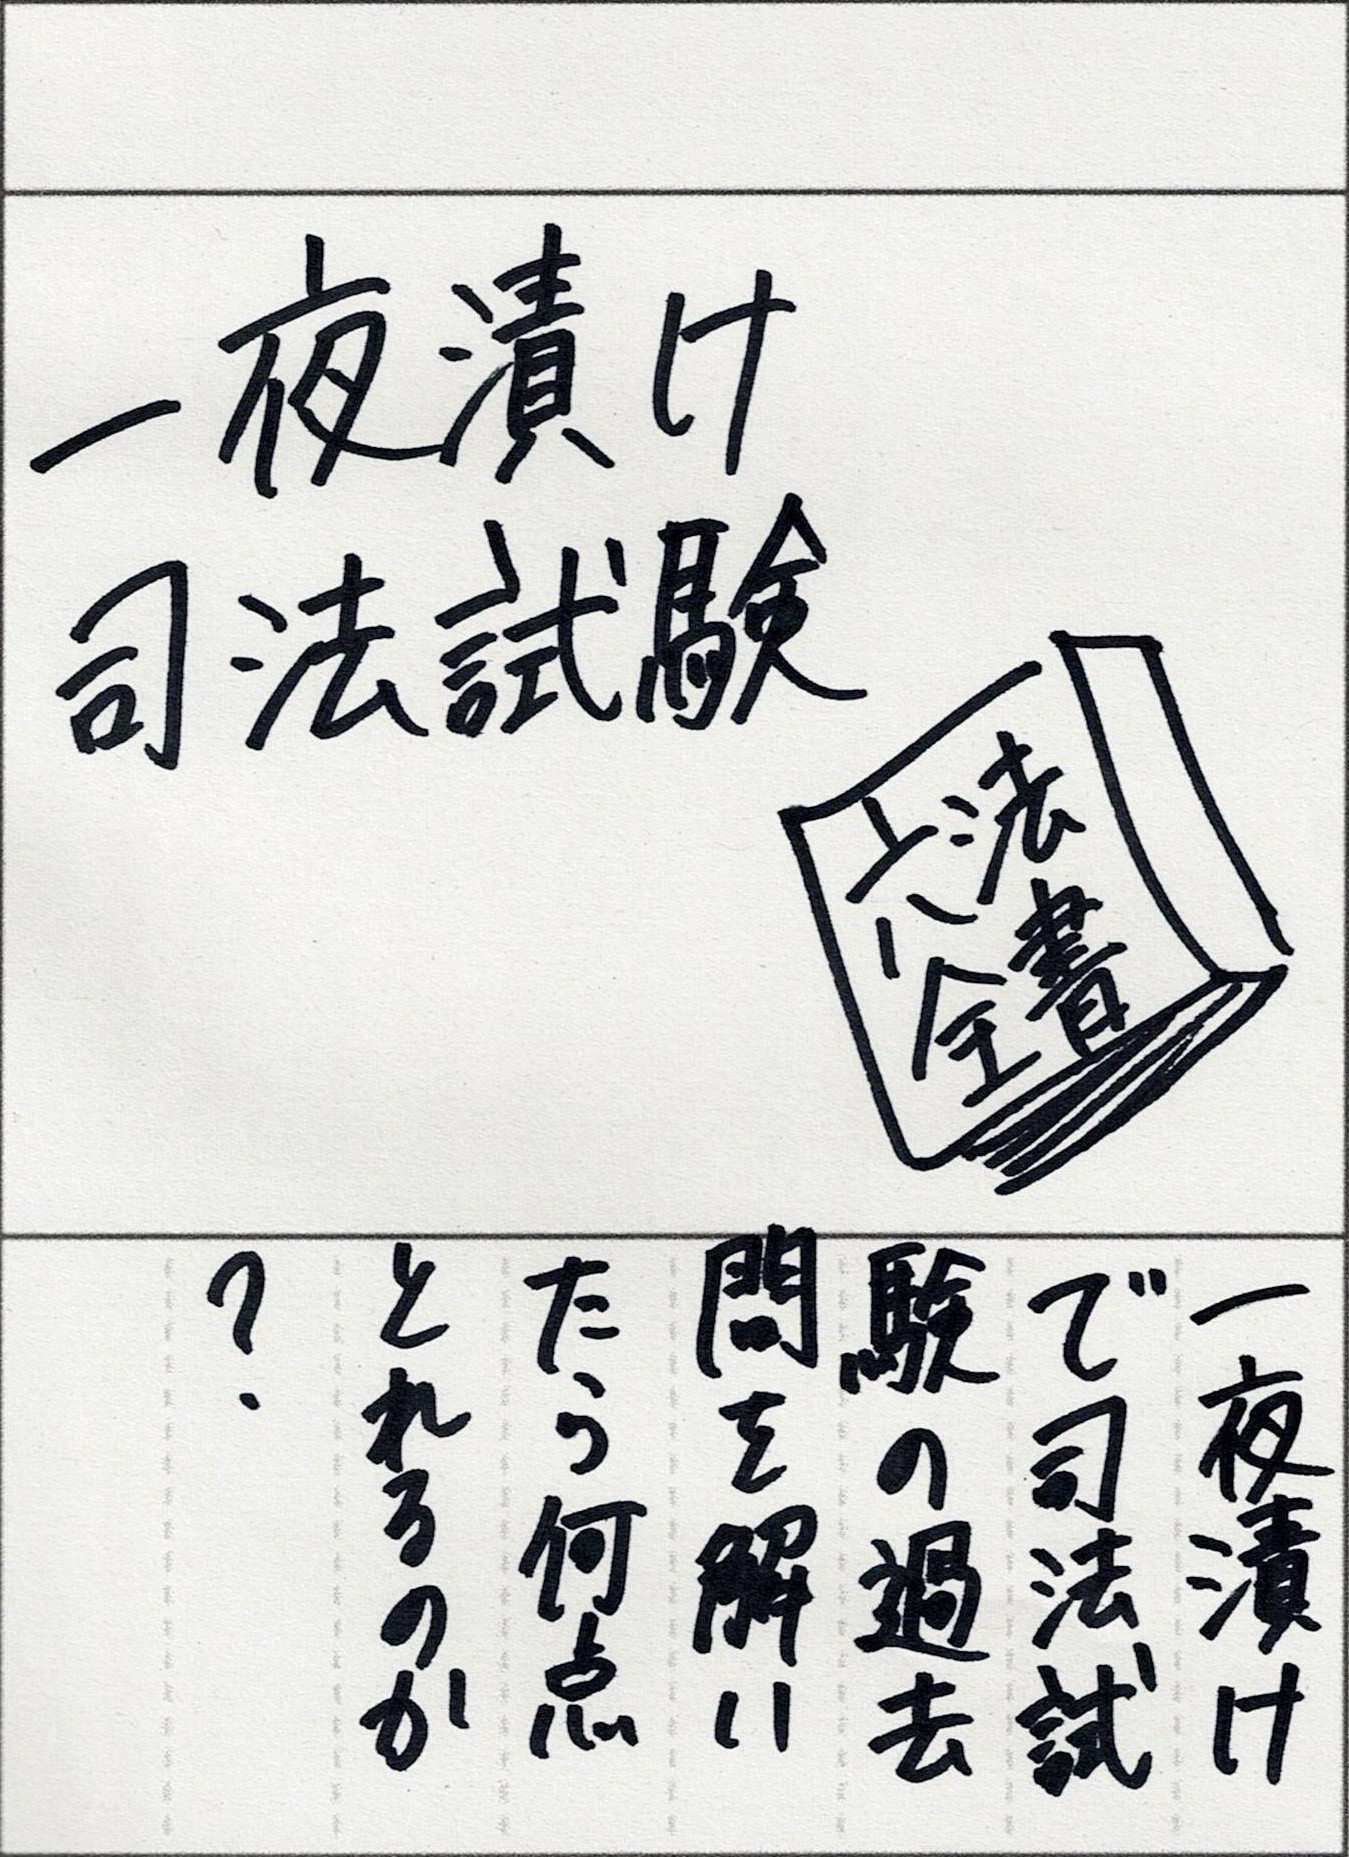 一夜漬け
司法試験
六法
全書
一夜漬け
で司法試
験の過去
問を解い
たら何点
とれるのか
?